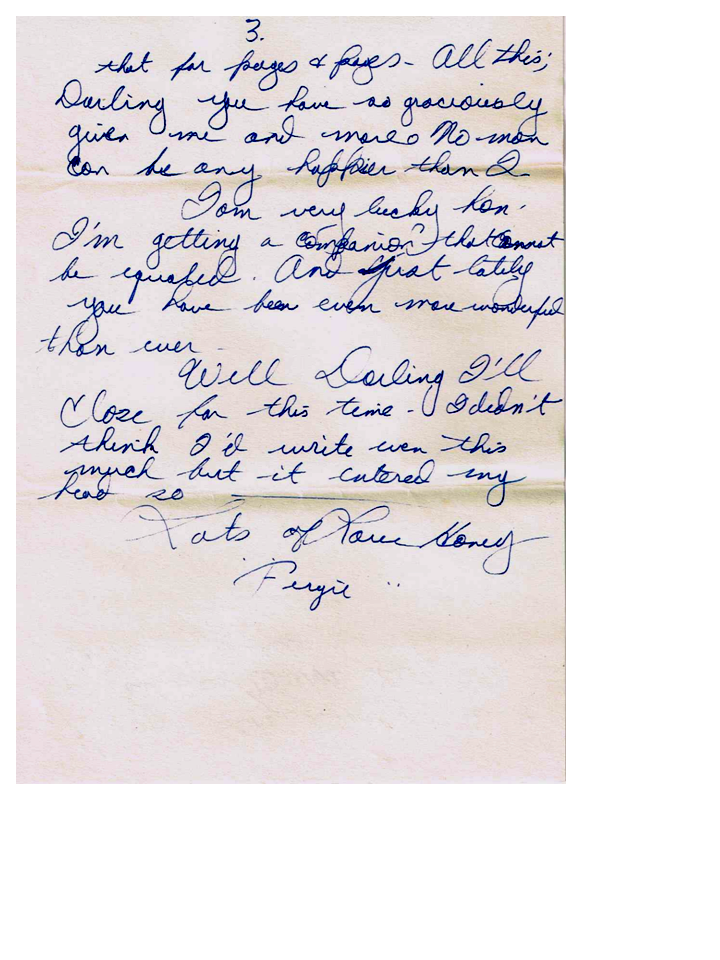 3.
that for pages & pages - All this;
Darling you have so graciously
given me and more. No man
can be any happier than I
I am very lucky Hon.
I'm getting a companion that cannot
be equaled. And just lately
you have been even more wonderful
than ever -
Well Darling I'll
Close for this time - I didn't
think I'd write even this
much but it entered my
head so
Lots of Love Honey
Fergie